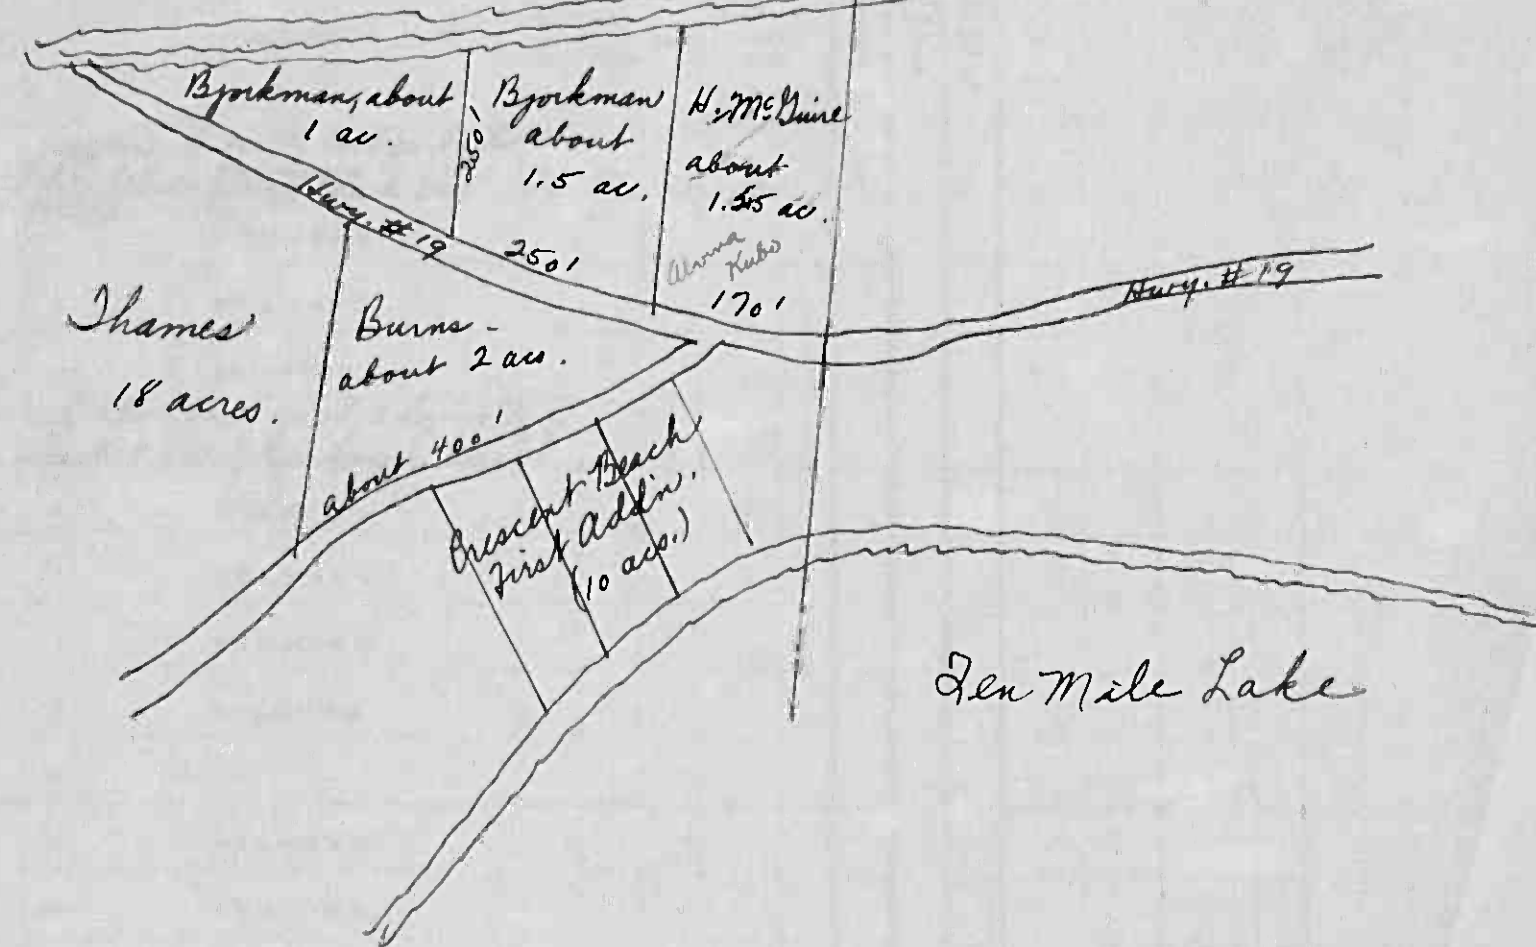 Bjorkman, about
1 ac.
250'
Bjorkman
about
1.5 ac.
H. McGuire
about
ac.
Alvina
Kubo
170'
Hwy. #19
250'
Hwy. #19
Thames
18 acres.
Burns -
about 2 acs.
about 400'
Crescent Beach
First Add'n.
(10 acs.)
Ten Mile Lake